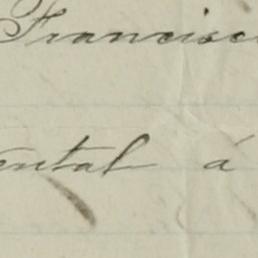 Francisc
ental á